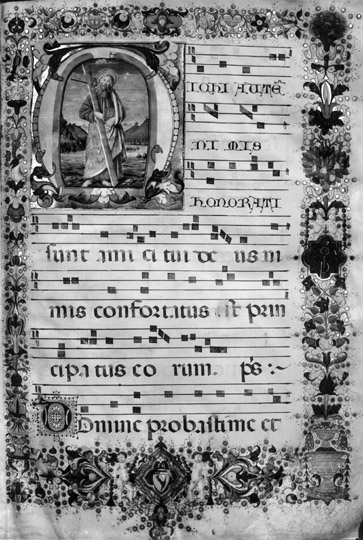 IChI AUTĒ
NI MIS
HONORATI
sunt ami ci tui de us ni
mis confortatus est prin
cipatus eo rum. p̄s
Domine probasti me et